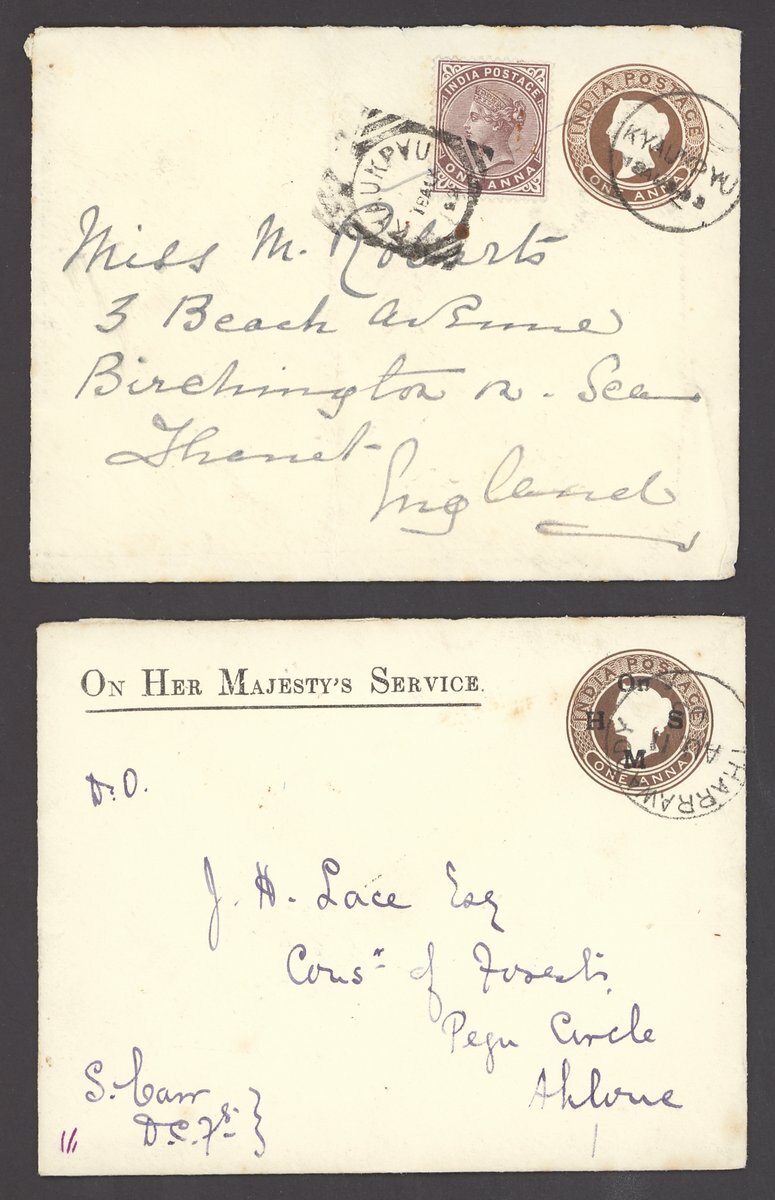 INDIA POSTAGE
ONE ANNA
INDIA POSTAGE
ONE ANNA
KYAUKPYU
KYAUKPYU
Miss M. Roberts
3 Beach Avenue
Birchington on. Sea
Thanet
England
ON HER MAJESTY'S SERVICE.
INDIA POSTAGE
On
H S
M
ONE ANNA
THARRAW
AU
D.O.
J. H. Lace Esq
Consr of Forests
Pegu Circle
Ahlone
S. Carr
D.C.Fs.